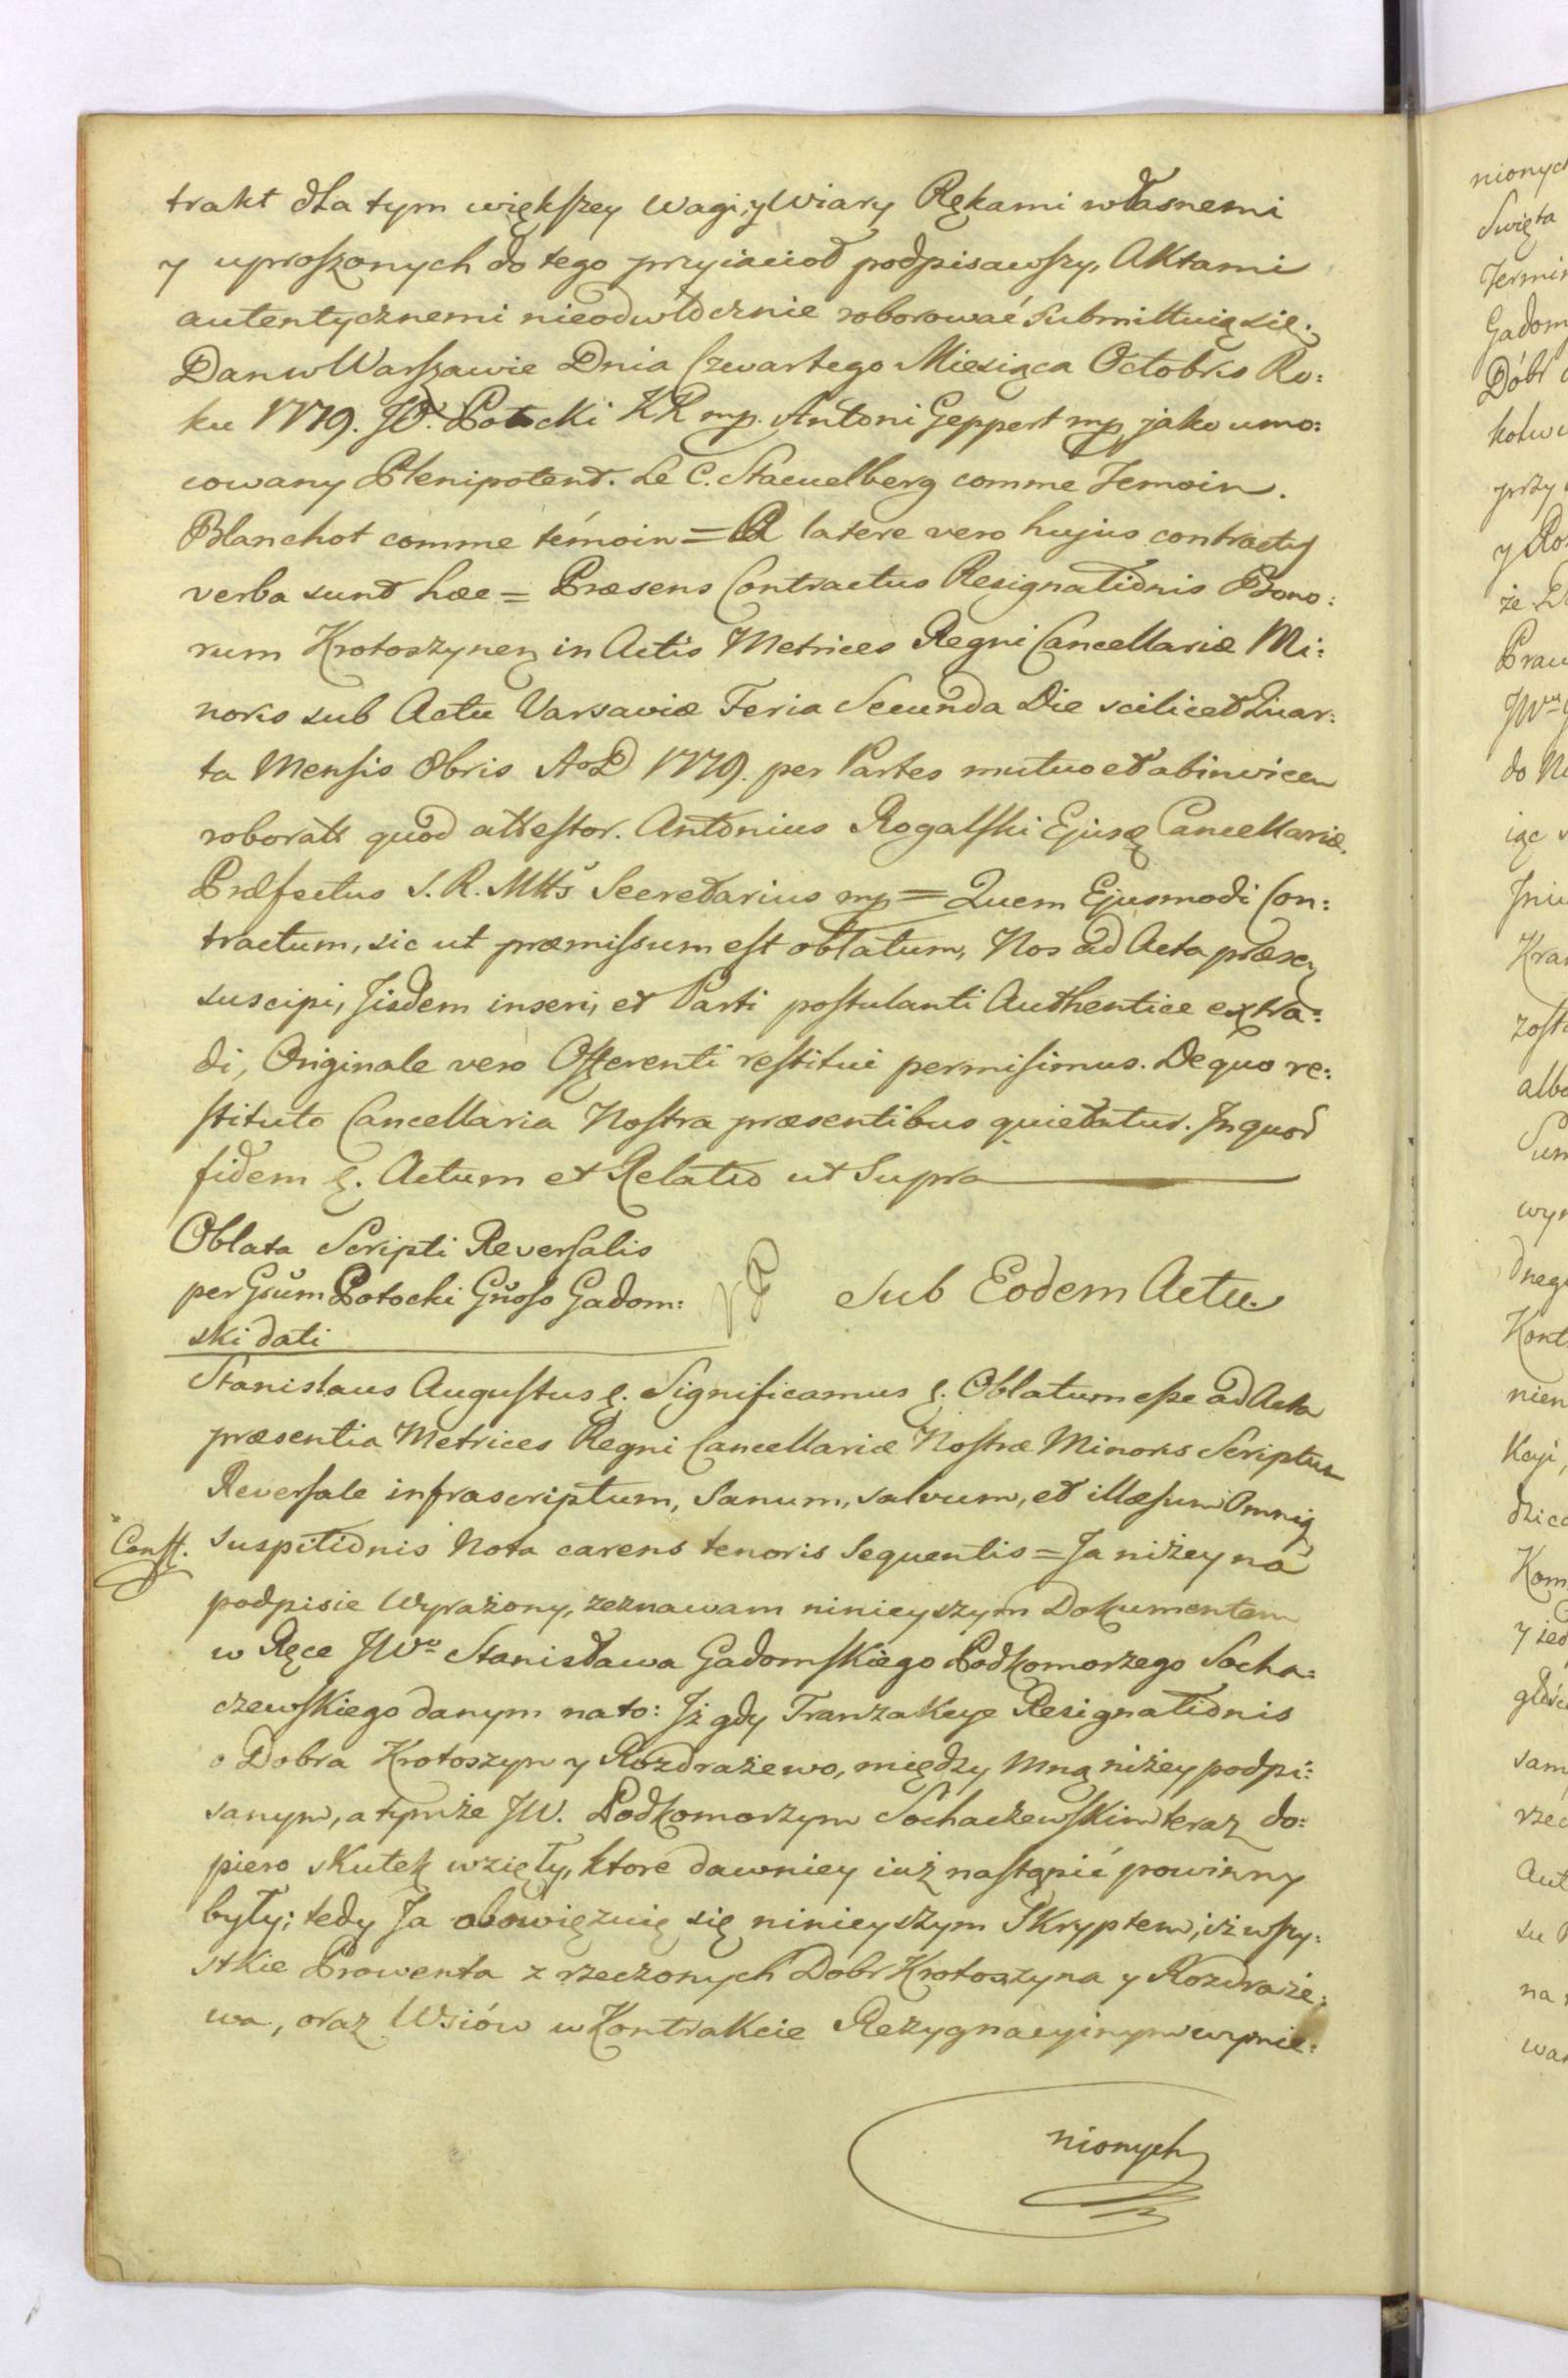 trakt dla tym większey Wagi, y Wiary Rękami własnemi
y uproszonych do tego przyiacioł podpisawszy, Aktami
autentycznemi nieodwłocznie roborować Submittuią się.
Dan w Warszawie Dnia Czwartego Miesiąca Octobris Ro:
ku 1779. Potocki KR mp. Antoni Geppert mp jako umo:
cowany Plenipotent. Le C. Stacuelberg comme Temoin.
Blanchot comme témoin = A latere vero hujus contractus
verba sunt hæc = Præsens Contractus Resignationis Bono:
rum Krotoszynen in Actis Metrices Regni Cancellariæ Mi:
noris sub Actu Varsaviæ Feria Secunda Die scilicet Quar:
ta Mensis 8bris AoD 1779. per Partes mutuo et abinvicem
roboratt quod attestor. Antonius Rogalski Ejusq Cancellariæ
Præfectus S. R. Mtts Secretarius mp = Quem Ejusmodi Con:
tractum, sic ut præmissum est oblatum, Nos ad Acta præsen
suscipi, Jisdem inseri, et Parti postulanti Authentice extra:
di, Originale vero Offerenti restitui permisimus. De quo re:
stituto Cancellaria Nostra præsentibus quietatur. In quor
fidem &. Actum et Relatio ut Supra
Oblata Scripti Reversalis
per Gsum Potocki Gnoso Gadom:
ski dati
Sub Eodem Actu.
Stanislaus Augustus &. Significamus &. Oblatum esse ad Acta
præsentia Metrices Regni Cancellariæ Nostræ Minoris Scriptum
Reversale infrascriptum, Sanum, salvum, et illæsum Omniq
Const.
suspitionis Nota carens tenoris Sequentis = Ja niżey na
podpisie Wyrażony, zeznawam ninieyszym Dokumentem
w Ręce JWo Stanisława Gadomskiego Podkomorzego Socha:
czewskiego danym na to: Jż gdy Tranzakcye Resignationis
o Dobra Krotoszyn y Rozdrażewo, między Mną niżey podpi:
sanym, a tymże JW. Podkomorzym Sochaczewskim teraz do:
piero skutek wzięły, ktore dawniey iuż nastąpić powinny
były; tedy Ja obowięzuię się ninieyszym Skryptem, iż wszy:
stkie Prowenta z rzeczonych Dobr Krotoszyna y Rozdraże:
wa, oraz Wsiów w Kontrakcie Rezygnacyinym wymie:
nionych